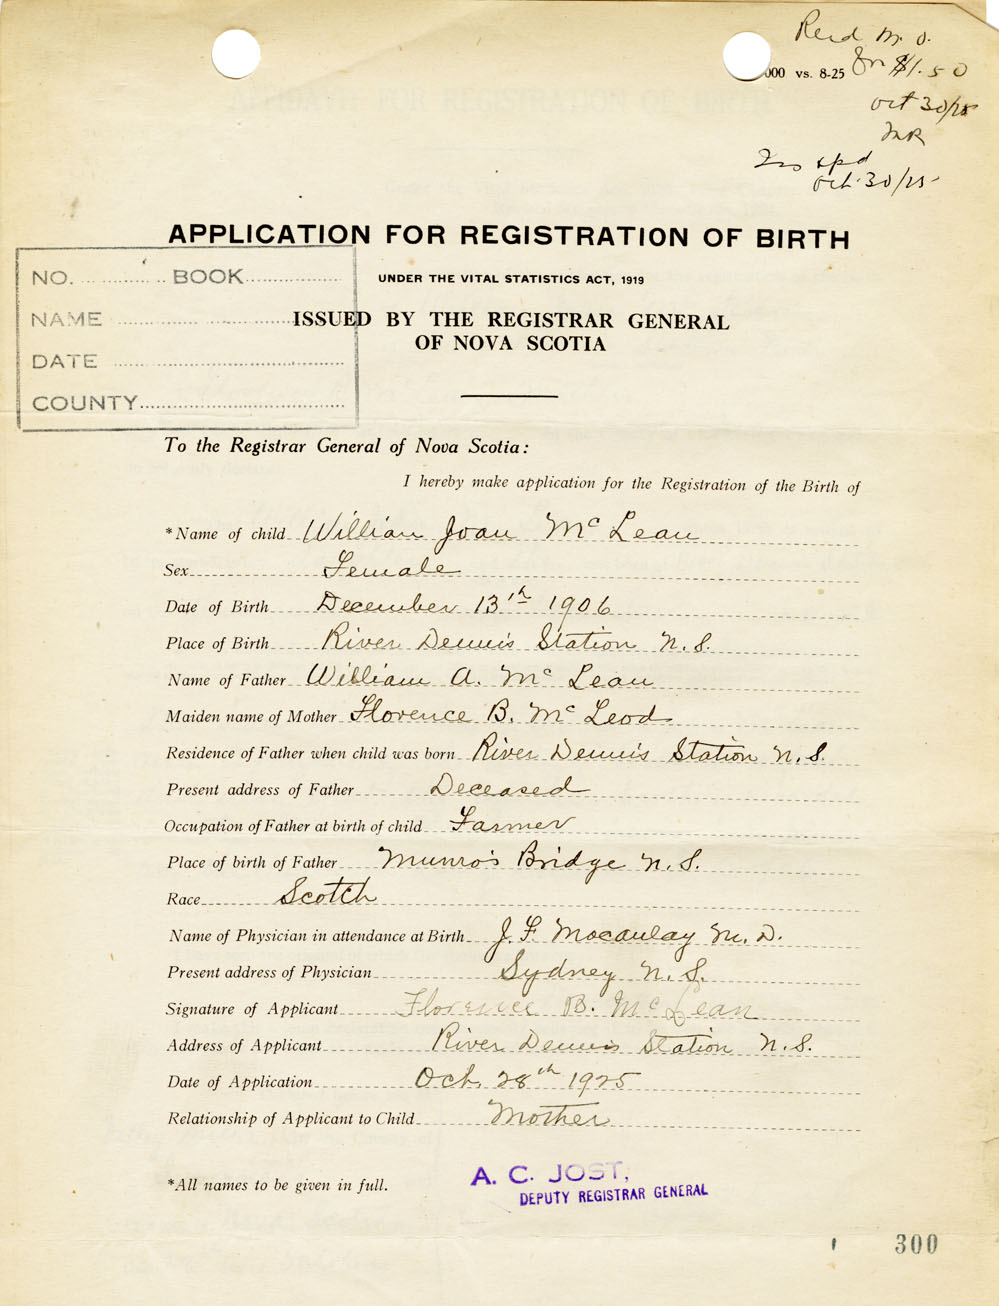 Recd M. O.
000 vs. 8-25 for $1.50
Oct 30/25
MR
Oct. 30/25
APPLICATION FOR REGISTRATION OF BIRTH
UNDER THE VITAL STATISTICS ACT, 1919
ISSUED BY THE REGISTRAR GENERAL
OF NOVA SCOTIA
NO. .............. BOOK................
NAME ..............................
DATE ..............................
COUNTY..............................
To the Registrar General of Nova Scotia:
I hereby make application for the Registration of the Birth of
*Name of child William Joan McLean
Sex Female
Date of Birth December 13th 1906
Place of Birth River Dennis Station N.S.
Name of Father William A. McLean
Maiden name of Mother Florence B. McLeod
Residence of Father when child was born River Dennis Station N.S.
Present address of Father Deceased
Occupation of Father at birth of child Farmer
Place of birth of Father Munro's Bridge N.S.
Race Scotch
Name of Physician in attendance at Birth J. F. Macaulay M.D.
Present address of Physician Sydney N.S.
Signature of Applicant Florence B. McLean
Address of Applicant River Dennis Station N.S.
Date of Application Oct. 28th 1925
Relationship of Applicant to Child Mother
*All names to be given in full.
A. C. JOST,
DEPUTY REGISTRAR GENERAL
300